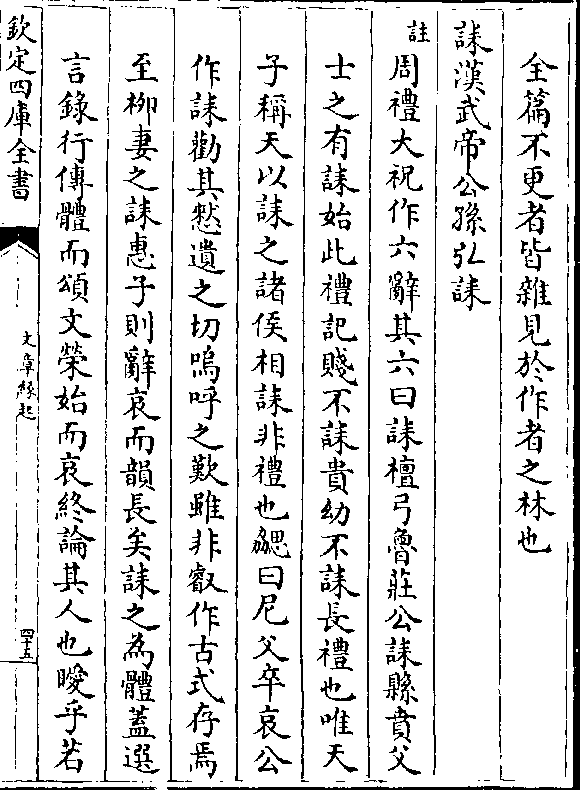 全篇不更者皆雜見於作者之林也
誄漢武帝公孫弘誄
註周禮大祝作六辭其六曰誄檀弓魯莊公誄縣賁父
士之有誄始此禮記賤不誄貴幼不誄長禮也唯天
子稱天以誄之諸侯相誄非禮也勰曰尼父卒哀公
作誄勸其憖遺之切嗚呼之歎雖非叡作古式存焉
至柳妻之誄惠子則辭哀而韻長矣誄之為體蓋選
言錄行傳體而頌文榮始而哀終論其人也曖乎若
欽定四庫全書
文章緣起
四十五